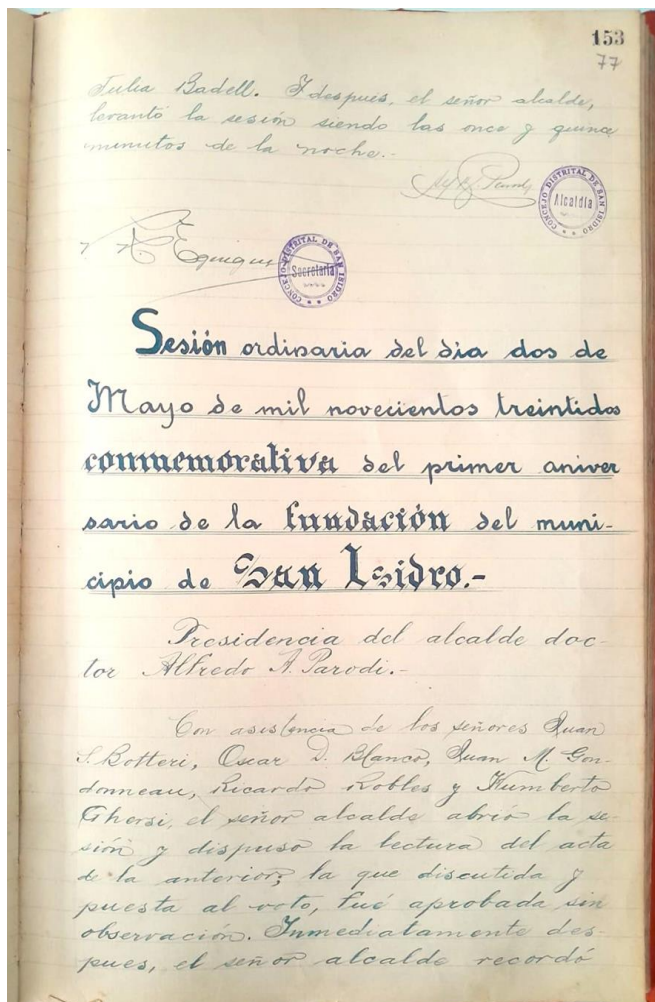 153
77
Julia Badell. Y despues, el señor alcalde,
levantó la sesión siendo las once y quince
minutos de la noche.-
CONCEJO DISTRITAL DE SAN ISIDRO
Alcaldía
CONCEJO DISTRITAL DE SAN ISIDRO
Secretaría
Sesión ordinaria del dia dos de
Mayo de mil novecientos treintidos
conmemorativa del primer aniver
sario de la fundación del muni-
cipio de San Isidro.-
Presidencia del alcalde doc-
tor Alfredo A. Parodi.-
Con asistencia de los señores Juan
S. Botteri, Oscar D. Blanco, Juan M. Gon-
donneau, Ricardo Robles y Humberto
Ghersi, el señor alcalde abrió la se-
sión y dispuso la lectura del acta
de la anterior; la que discutida y
puesta al voto, fué aprobada sin
observación. Inmediatamente des-
pues, el señor alcalde recordó